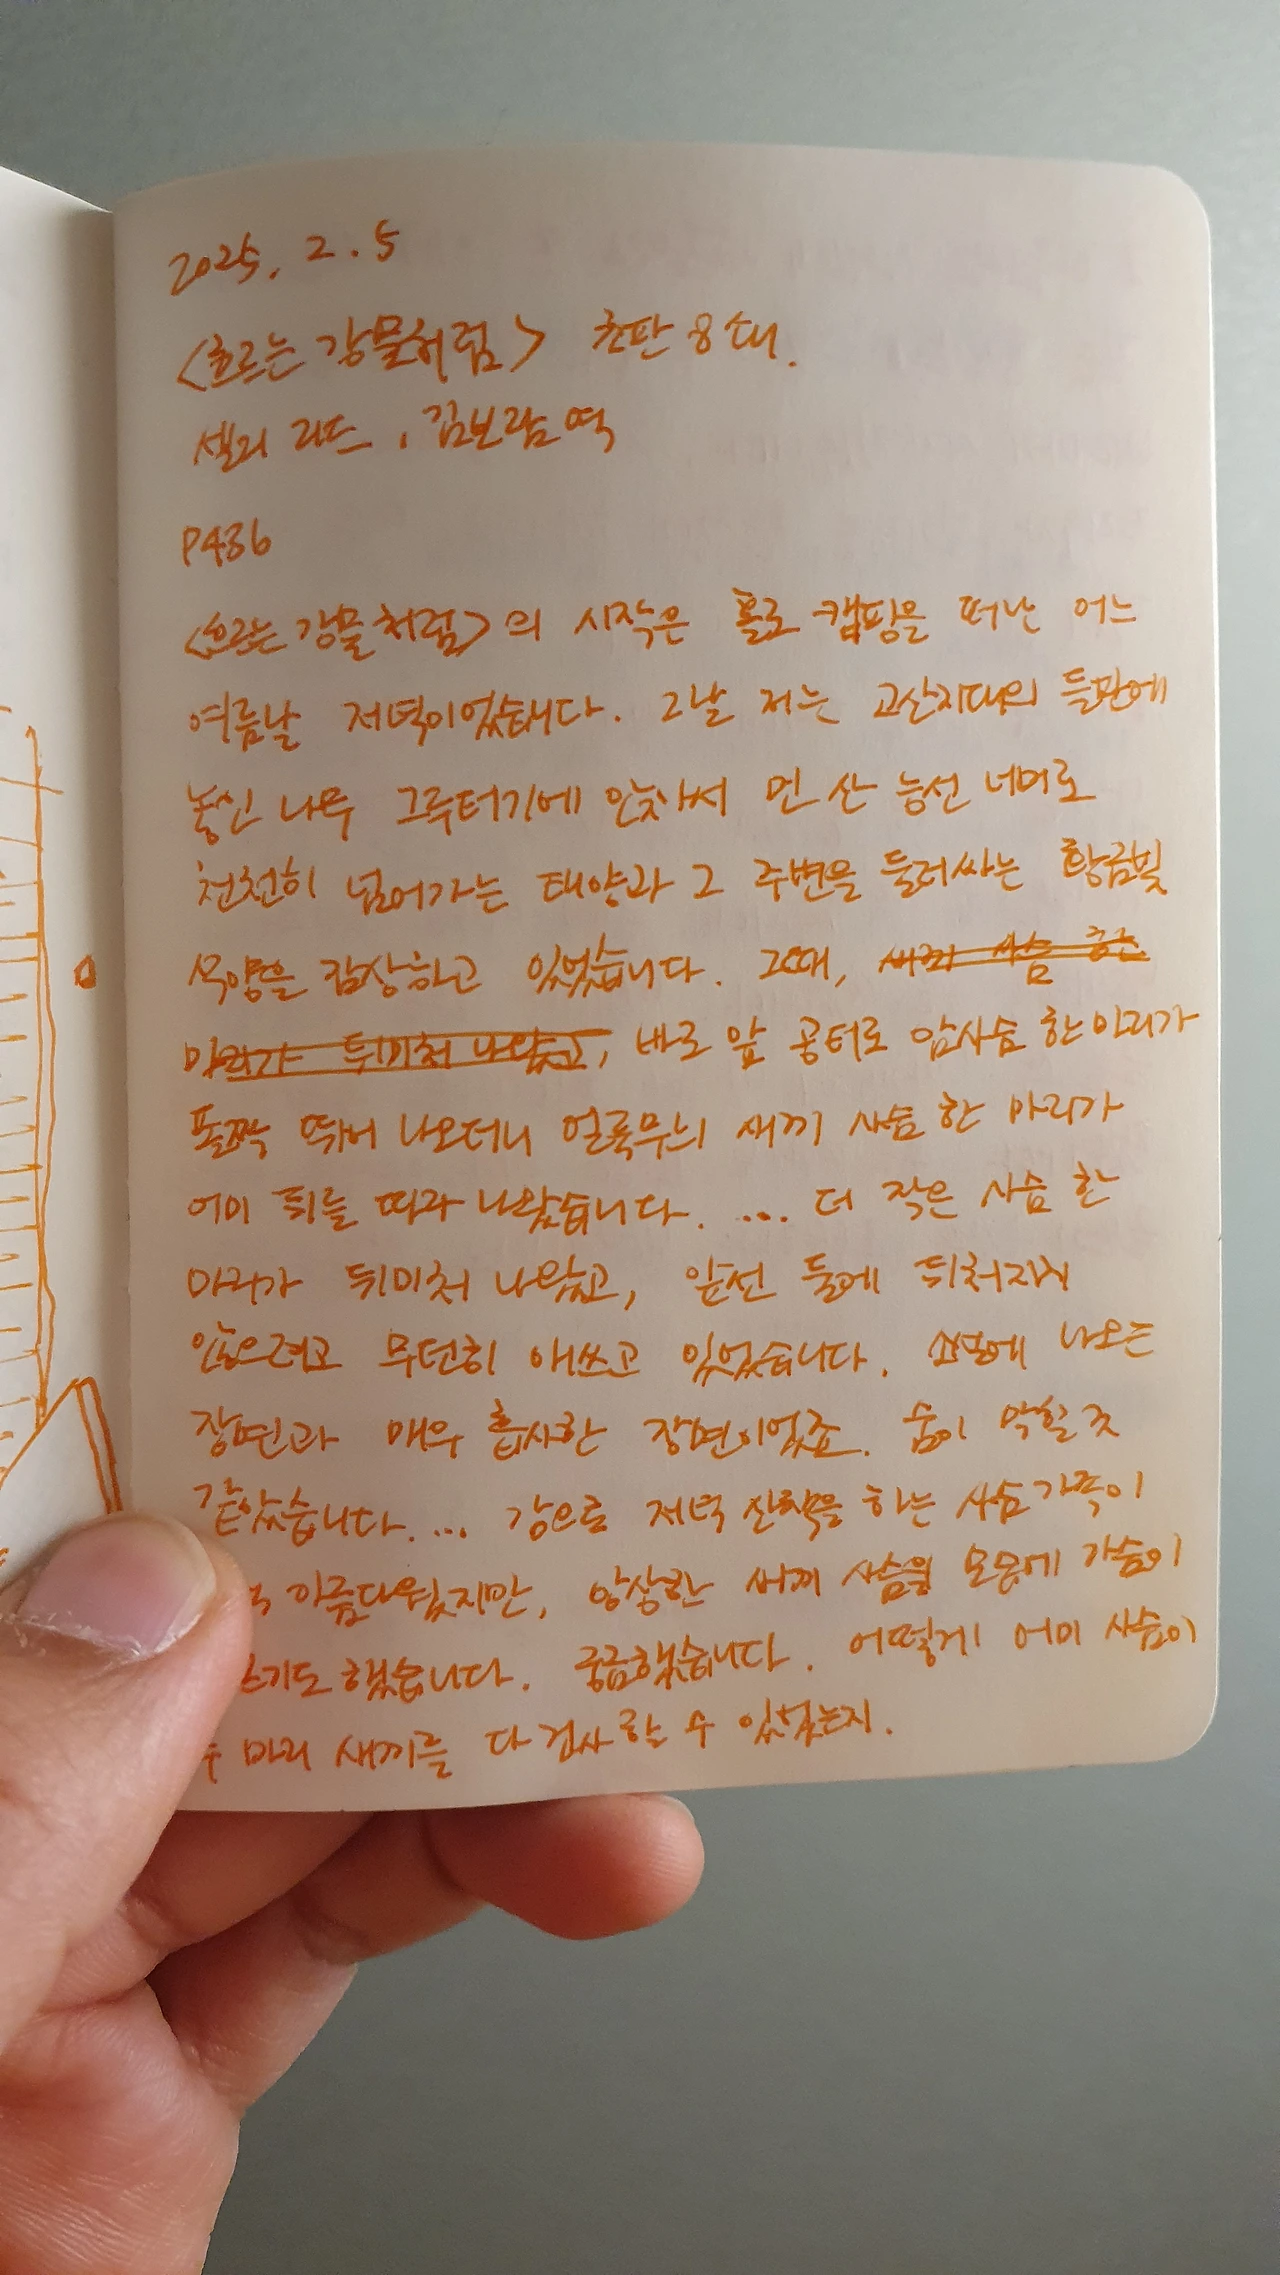 2025. 2. 5
<흐르는 강물처럼> 초판 8쇄.
셸리 리드, 김보람 역
P436
<흐르는 강물처럼>의 시작은 홀로 캠핑을 떠난 어느
여름날 저녁이었습니다. 그날 저는 고산지대의 들판에
놓인 나무 그루터기에 앉아서 먼 산 능선 너머로
천천히 넘어가는 태양과 그 주변을 둘러싸는 황금빛
석양을 감상하고 있었습니다. 그때, 새끼 사슴 한
마리가 뒤미처 나왔고, 바로 앞 공터로 암사슴 한 마리가
폴짝 뛰어 나오더니 얼룩무늬 새끼 사슴 한 마리가
어미 뒤를 따라 나왔습니다. ... 더 작은 사슴 한
마리가 뒤미처 나왔고, 앞선 둘에 뒤처지지
않으려고 무던히 애쓰고 있었습니다. 소설에 나오는
장면과 매우 흡사한 장면이었죠. 숨이 막힐 것
같았습니다. ... 강으로 저녁 산책을 하는 사슴 가족이
아름다웠지만, 앙상한 새끼 사슴의 모습에 가슴이
기도 했습니다. 궁금했습니다. 어떻게 어미 사슴이
마리 새끼를 다 건사할 수 있었는지.